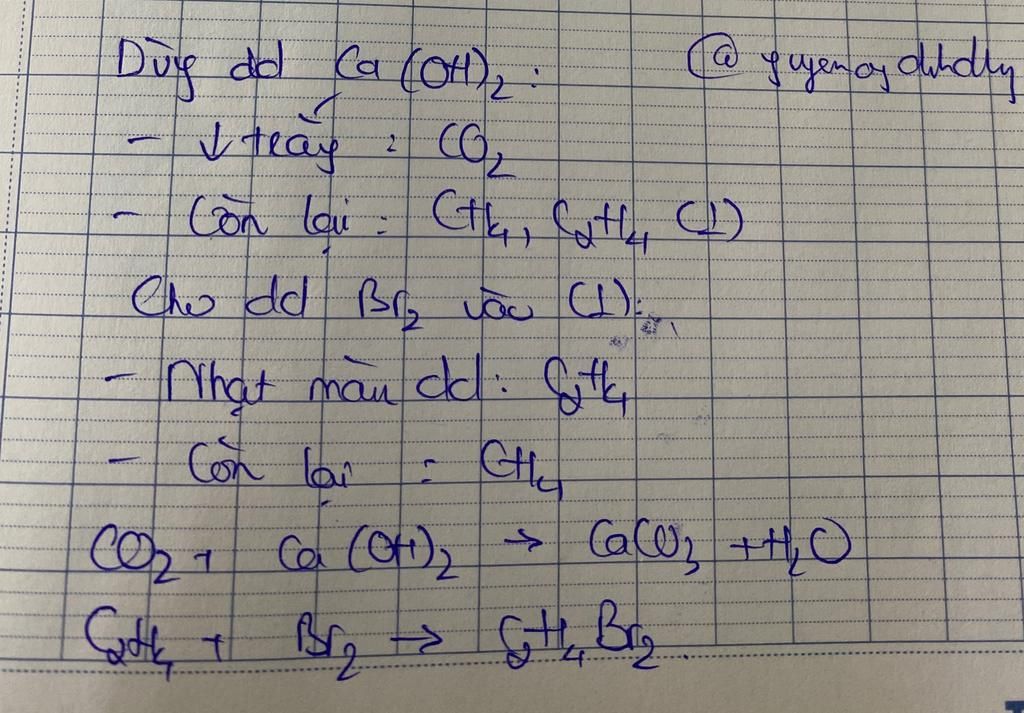 Dùng dd Ca(OH)₂:
- ↓ trắng : CO₂
- Còn lại : CH₄, C₂H₄ (1)
Cho dd Br₂ vào (1):
- Nhạt màu dd : C₂H₄
- Còn lại : CH₄
CO₂ + Ca(OH)₂ → CaCO₃ + H₂O
C₂H₄ + Br₂ → C₂H₄Br₂.